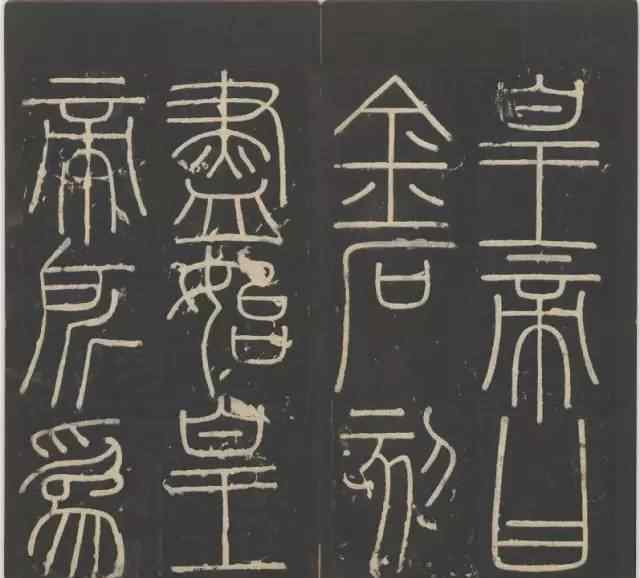 皇帝曰
金石刻
盡始皇
帝所爲